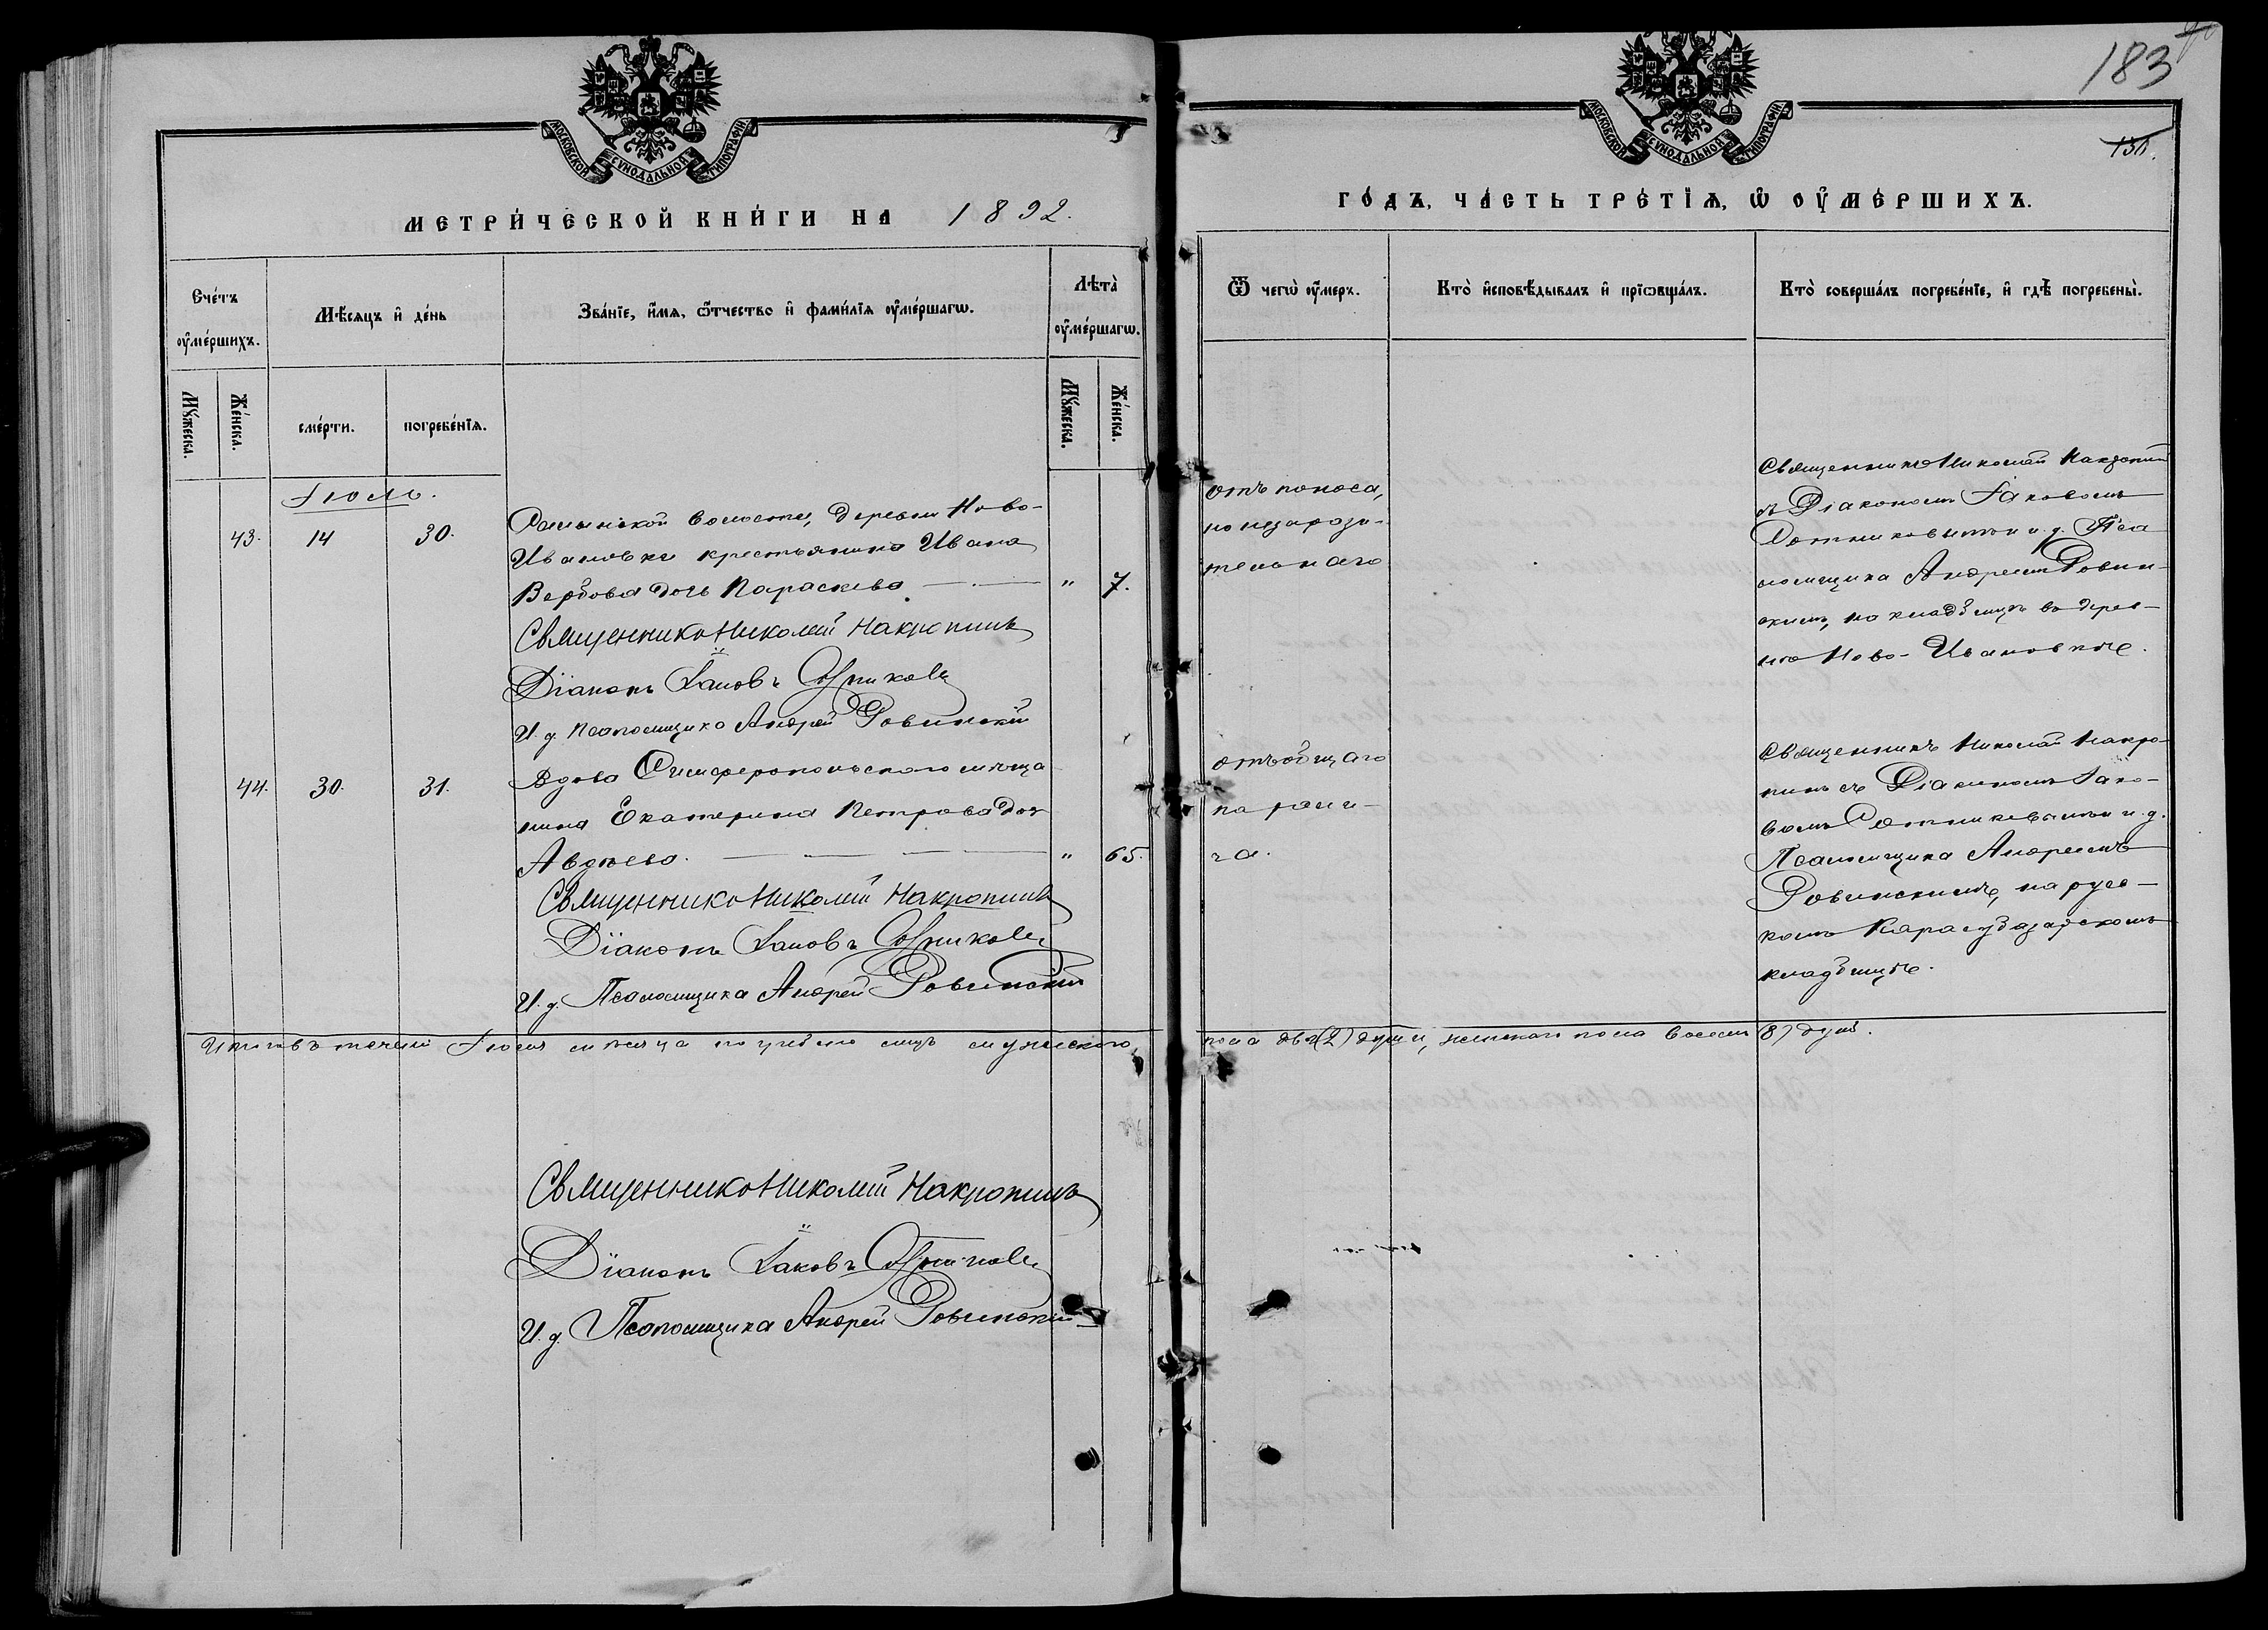 183
МОСКОВСКОЙ СѴНОДАЛЬНОЙ ТИПОГРАФІИ
МОСКОВСКОЙ СѴНОДАЛЬНОЙ ТИПОГРАФІИ
МЕТРИ́ЧЕСКОЙ КНИ́ГИ НА 1892.
ГО́ДЪ, ЧА́СТЬ ТРЕ́ТІѦ, Ѡ ОУ҆МЕ́РШИХЪ.
Сче́тъ оу҆ме́ршихъ.
Мѣ́сяцъ и҆ де́нь
Зва́нїе, и҆́мѧ, ѻ҆́тчество и҆ фами́лїѧ оу҆ме́ршагѡ.
Лѣта̀ оу҆ме́ршагѡ.
Ѿ чегѡ̀ оу҆́меръ.
Кто̀ и҆сповѣ́дывалъ и҆ прїѡбща́лъ.
Кто̀ соверша́лъ погребе́нїе, и҆ гдѣ̀ погребены̀.
Мꙋ́жеска.
Же́нска.
сме́рти.
погребе́нїѧ.
Мꙋ́жеска.
Же́нска.
Іюль.
43. 14 30.
волости, деревни Ново-
Ивановки крестьянина Ивана
Вербова дочь Параскева — " 7.
Священникъ Николай Накропинъ
Діаконъ Іаковъ Сотниковъ
И. д. Псаломщика Андрей Ровинскій
отъ поноса,
незарази-
тельнаго
Священникъ Николай
съ Діакономъ Іаковомъ
Сотниковымъ и и. д. Пса
ломщика Андреемъ Ровин-
скимъ, на кладбищѣ въ дерев-
нѣ Ново-Ивановкѣ.
44. 30. 31.
Вдова Симферопольскаго мѣща
нина Екатерина Петрова доч
Авдѣева. — " 65.
Священникъ Николай Накропинъ
Діаконъ Іаковъ Сотниковъ
И. д. Псаломщика Андрей Ровинскій
отъ общаго
парали-
ча.
Священникъ Николай Накро-
пинъ съ Діакономъ Іако-
вомъ Сотниковымъ и и. д.
Псаломщика Андреемъ
Ровинскимъ, на русс-
комъ Карасубазарскомъ
кладбищѣ.
Итого въ теченіи Іюля мѣсяца погребено лицъ мужескаго
пола двѣ (2) души, женскаго пола восемь (8) душъ.
Священникъ Николай Накропинъ
Діаконъ Іаковъ Сотниковъ
И. д. Псаломщика Андрей Ровинскій